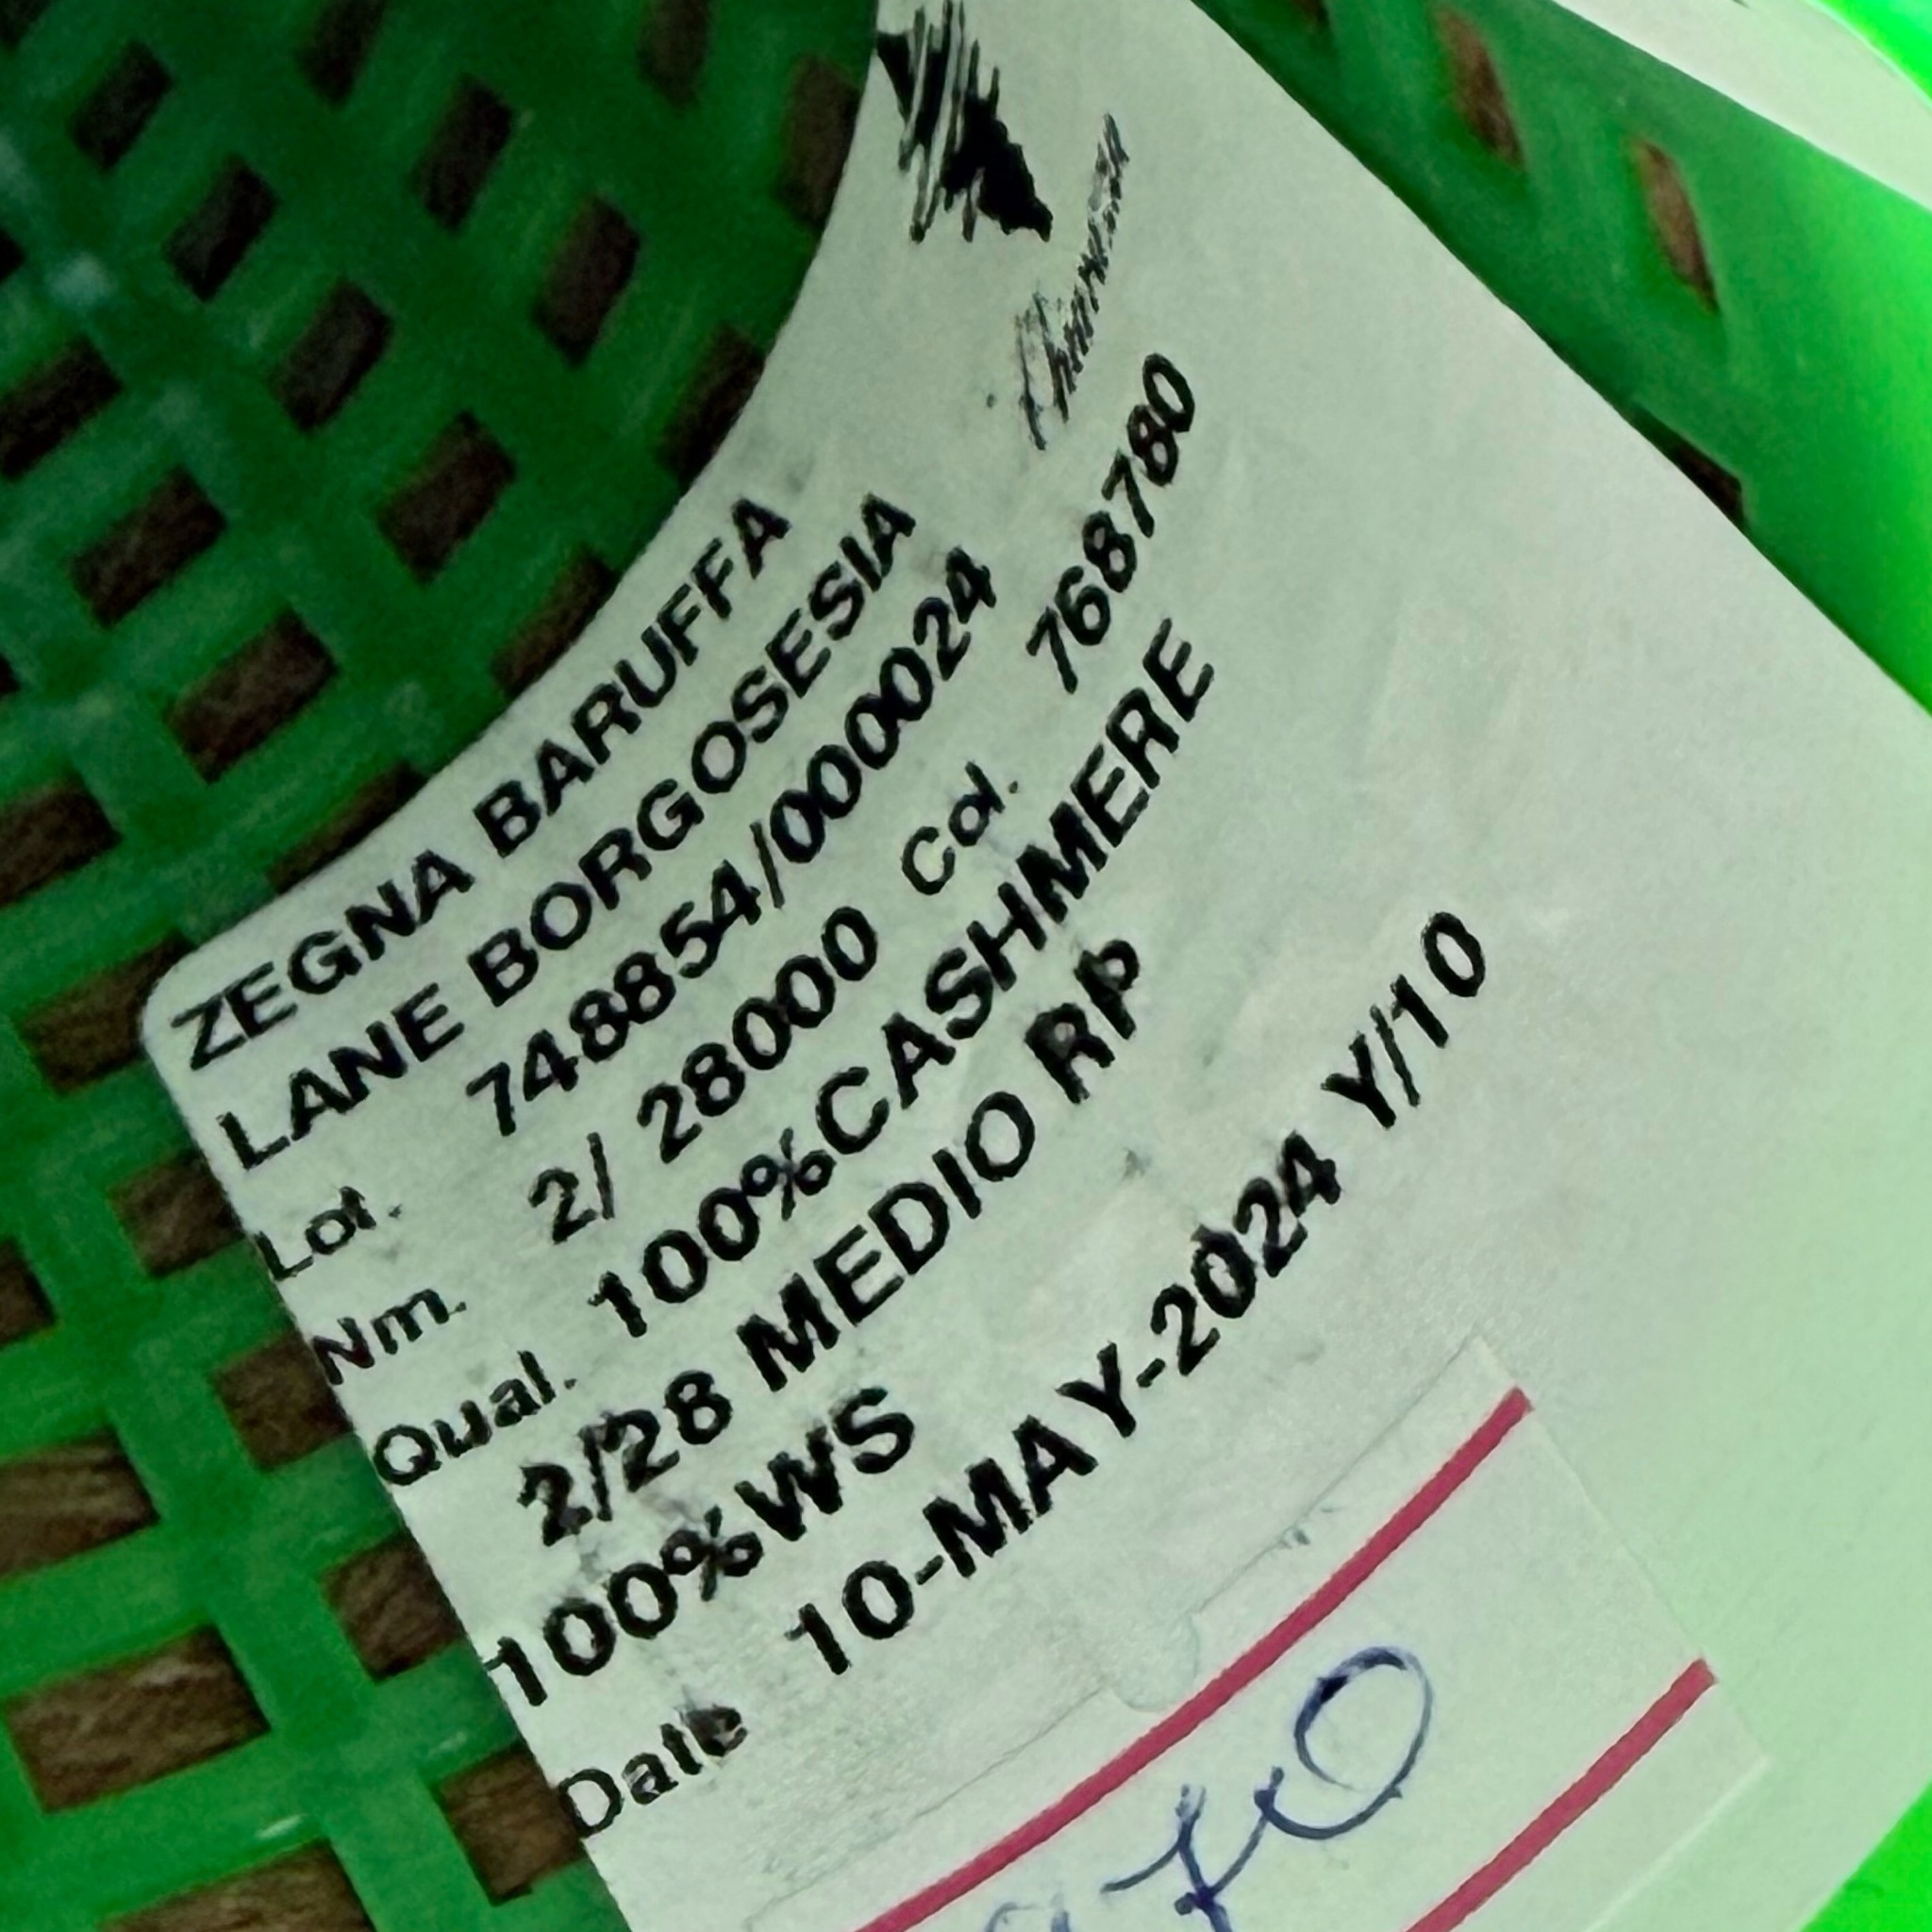 ZEGNA BARUFFA
LANE BORGOSESIA
Lot. 748854/000024
Nm. 2/ 28000 Col. 768780
Qual. 100%CASHMERE
2/28 MEDIO RP
100%WS
Date 10-MAY-2024 Y/10